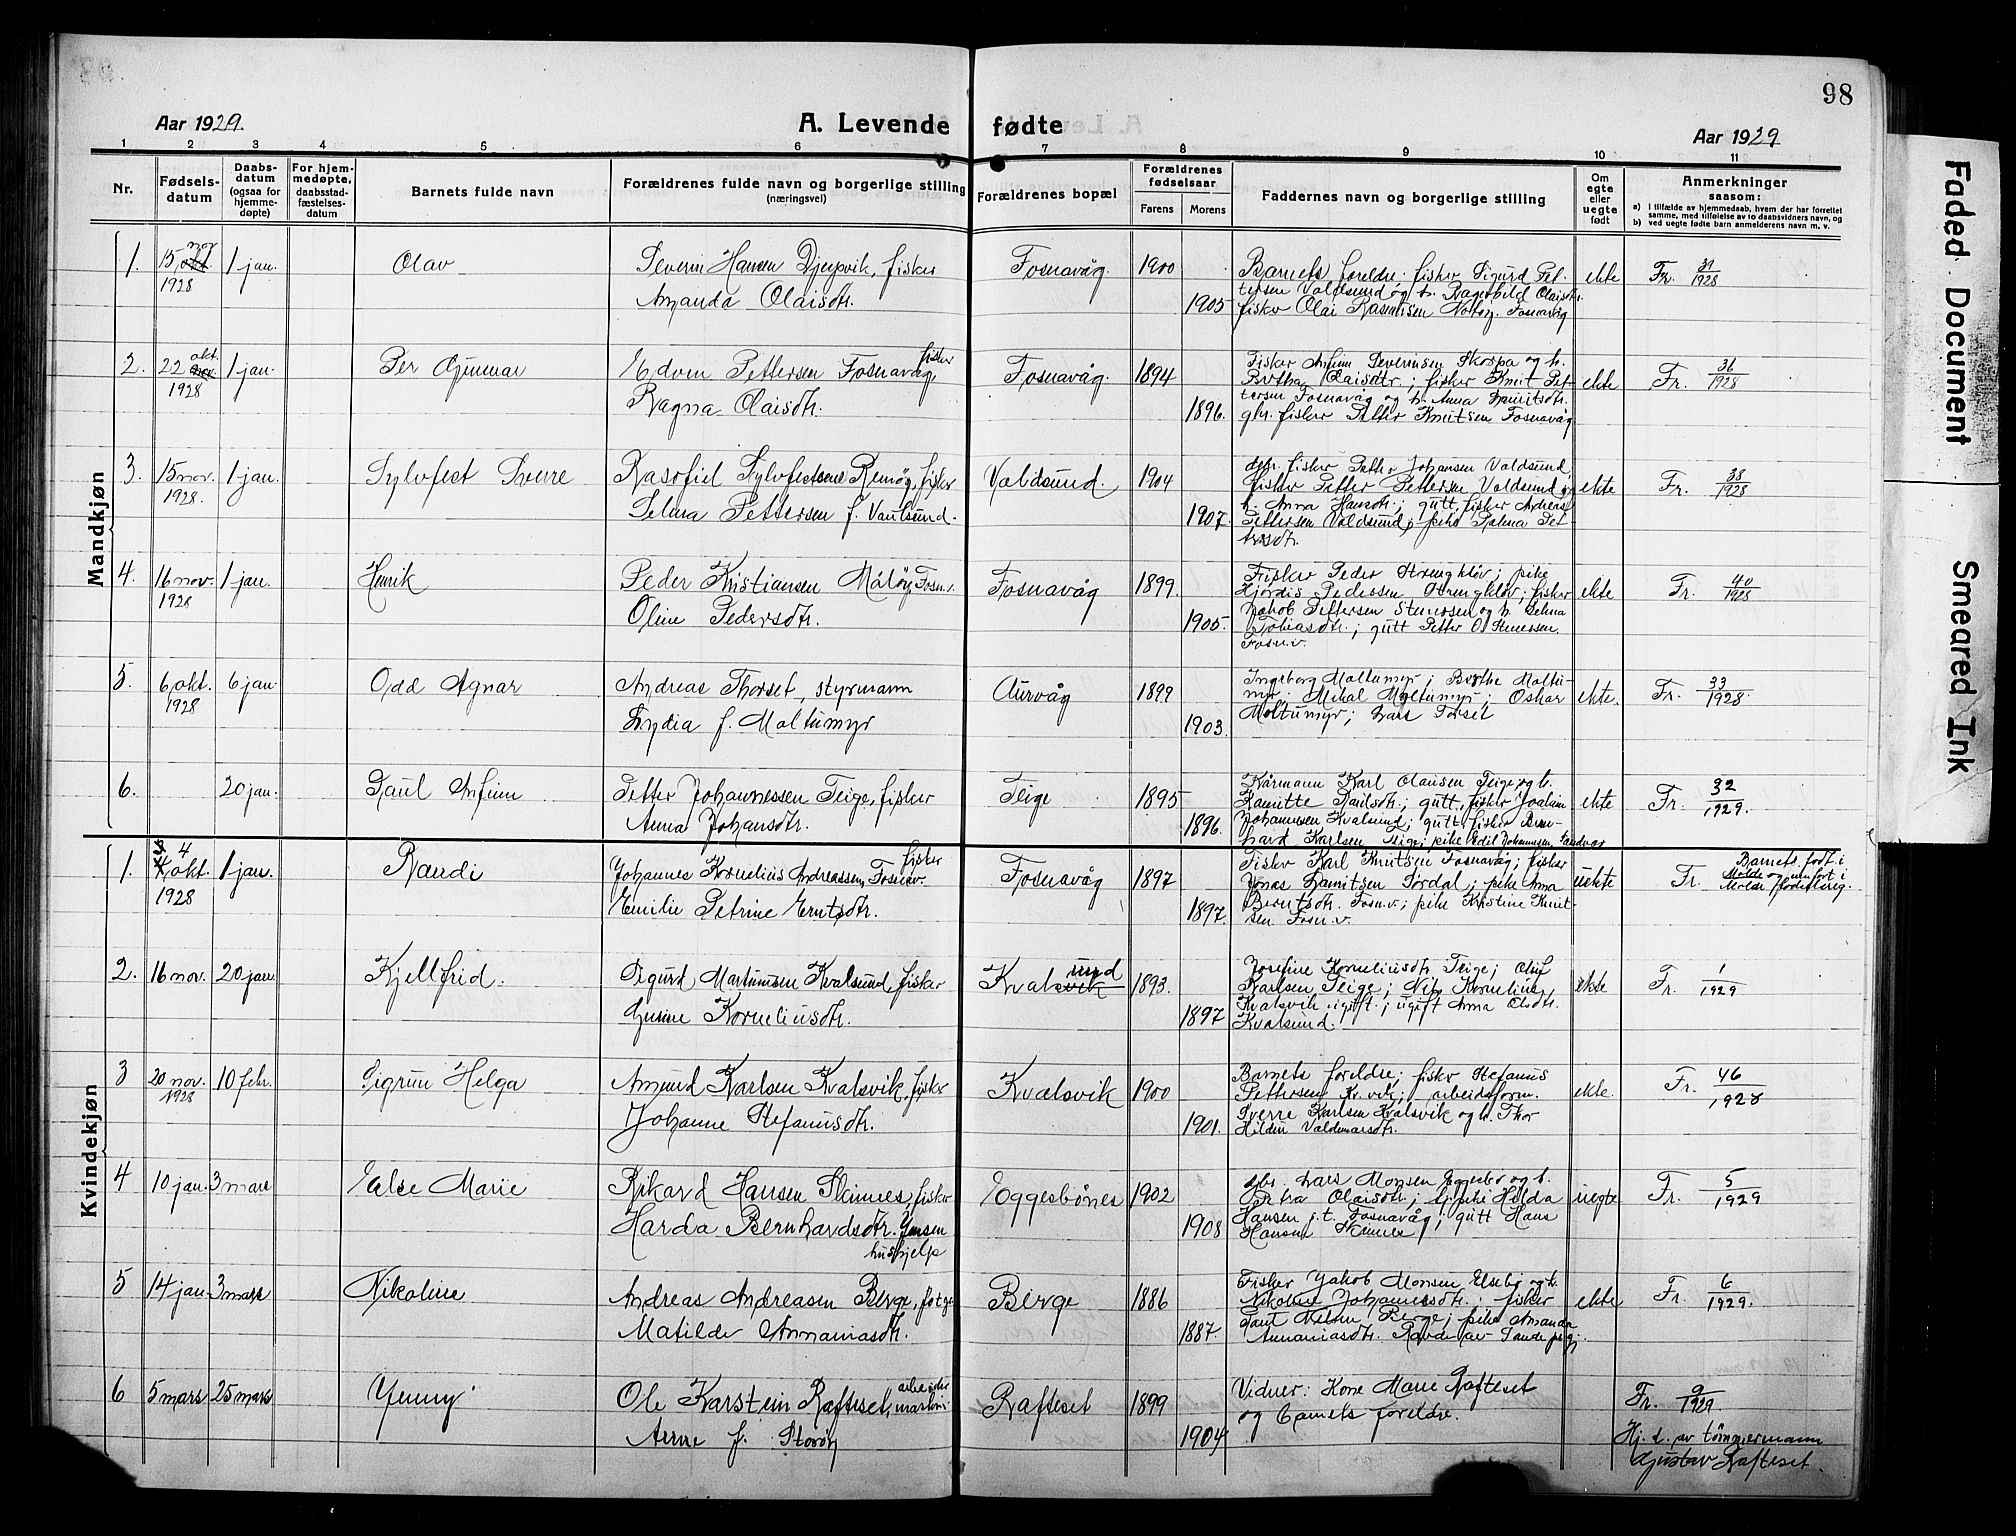 98
Aar 1929.
A. Levende fødte
Aar 1929
1 2 3 4 5 6 7 8 9 10 11
Nr.
Fødsels-
datum
Daabs-
datum
(ogsaa for
hjemme-
døpte)
For hjem-
medøpte,
daabsstad-
fæstelses-
datum
Barnets fulde navn
Forældrenes fulde navn og borgerlige stilling
(næringsvei)
Forældrenes bopæl
Forældrenes
fødselsaar
Farens Morens
Faddernes navn og borgerlige stilling
Om
egte
eller
uegte
født
Anmerkninger
saasom:
a) i tilfælde av hjemmedaab, hvem der har forrettet
samme, med tilføielse av to daabsvidners navn, og
b) ved uegte fødte barn anmelderens navn m. v.
Mandkjøn
1. 15 nov. 1928 1 jan. Olav
Severin Hansen Djupvik, fisker
Amanda Olaisdtr.
Fosnavåg. 1900 1905
Barnets foreldre; fisker Sigurd Pet-
tersen Valdsund og h. Ragnhild Olaisdtr.
fisker Olai Rasmussen Notøy. Fosnavåg
ekte Fr. 39/1928
2. 22 okt. 1928 1 jan. Per Gunnar
Edvin Pettersen Fosnavåg, fisker
Ragna Olaisdtr.
Fosnavåg. 1894 1896.
Fisker Anfinn Severinsen Skorpa og h.
Bertha Olaisdtr.; fisker Knut Pet-
tersen Fosnavåg og h. Anna
fisker Petter Knutsen Fosnavåg
ekte Fr. 36/1928
3. 15 nov. 1928. 1 jan. Sylvfest Sverre
Rasofiel Sylvfestsen Remøy, fisker
Selma Pettersen f. Vaulsund.
Valdsund. 1904 1907.
fisker Petter Johansen Valdsund,
fisker Petter Pettersen Valdsund og
h. Anna Hansdtr.; gutt, fisker Andreas
Pettersen Valdsund; pike Palma Pet-
tersdtr.
ekte Fr. 38/1928
4. 16 nov. 1928 1 jan. Henrik
Peder Kristiansen Måløy, Fosn.v.
Oline Pedersdtr.
Fosnavåg 1899. 1905.
Fisker Peder ; pike
Hjørdis Pedersen ; fisker
Jakob Pettersen Stenersen og h. Selma
Tobiasdtr.; gutt Petter O. Stenersen.
Fosn.v.
ekte Fr. 40/1928
5. 6. okt. 1928 6 jan. Odd Agnar
Andreas Thorset, styrmann
Lydia f. Moltumyr
Aurvåg 1899 1903.
Ingeborg Moltumyr; Berthe Moltu-
myr; Mikal Moltumyr; Oskar
Moltumyr; Lars Torset
ekte. Fr. 33/1928.
6. 20 jan. Paul Anfinn
Petter Johannessen Teige, fisker
Anna Johansdtr.
Teige 1895 1896.
Kårmann Karl Olausen Teige og h.
Paulsdtr.; gutt, fisker Joakim
Johannessen Kvalsund; gutt, fisker Bern-
hard Karlsen Teige; pike Johannessen,
ekte Fr. 32/1929.
Kvindekjøn
1. 4 okt. 1928 1 jan. Randi
Johannes Kornelius Andreassen, Fosnav. fisker
Emilie Petrine Erntsdtr.
Fosnavåg 1897 1897.
Fisker Karl Knutsen Fosnavåg; fisker
Jonas Lauritsen Sørdal; pike Anna
Berntsdtr. Fosn.v.; pike Kristine Knut-
sen Fosn.v.
uekte Fr. Barnet født i
Molde og innført i
Molde
2. 16 nov. 20 jan. Kjellfrid.
Sigurd Martinusen Kvalsund, fisker
Gurine Korneliusdtr.
Kvalsund 1893. 1897
Josefine Korneliusdtr. Teige; Oluf
Karlsen Teige; Nils Kornelius
Kvalsvik ugift.; ugift Anna Olsdtr.
Kvalsund.
ekte Fr. 1/1929
3 20 nov. 1928 10 febr. Sigrun Helga
Amund Karlsen Kvalsvik, fisker
Johanne Stefanusdtr.
Kvalsvik 1900 1901.
Barnets foreldre; fisker Stefanus
Pettersen Kv.vik; arbeidsform.
Sverre Karlsen Kvalsvik og h. Thor
Hildur Valdemarsdtr.
ekte. Fr. 46/1928
4 10 jan. 3 mars Else Marie
Rikard Hansen Skinnes, fisker
Harda Bernhardsdtr. Jensen
hushjelp
Eggesbønes 1902 1908
gbr. Lars Monsen Eggesbø og h.
Petra Olaisdtr.; pike Hilda
Hansen p.t. Fosnavåg; gutt Hans
Hansen
uegte Fr. 5/1929
5 14 jan. 3 mars Nikoline
Andreas Andreasen Berge,
Matilde Annaniasdtr.
Berge 1886 1887.
Fisker Jakob Monsen Elsebø og h.
Nikoline Johannesdtr.; fisker
Berge; pike Amanda
Annaniasdtr.
ekte Fr. 6/1929.
6 5 mars 25 mars Jenny
Ole Karstein Rafteset, arbeider
Anne f. Storøy
Rafteset 1899 1904
Vidner: Kone Marie Rafteset
og barnets foreldre.
Fr. 9/1929.
Hj. d. av tømmermann
Gustav Rafteset.
Faded Document
Smeared Ink